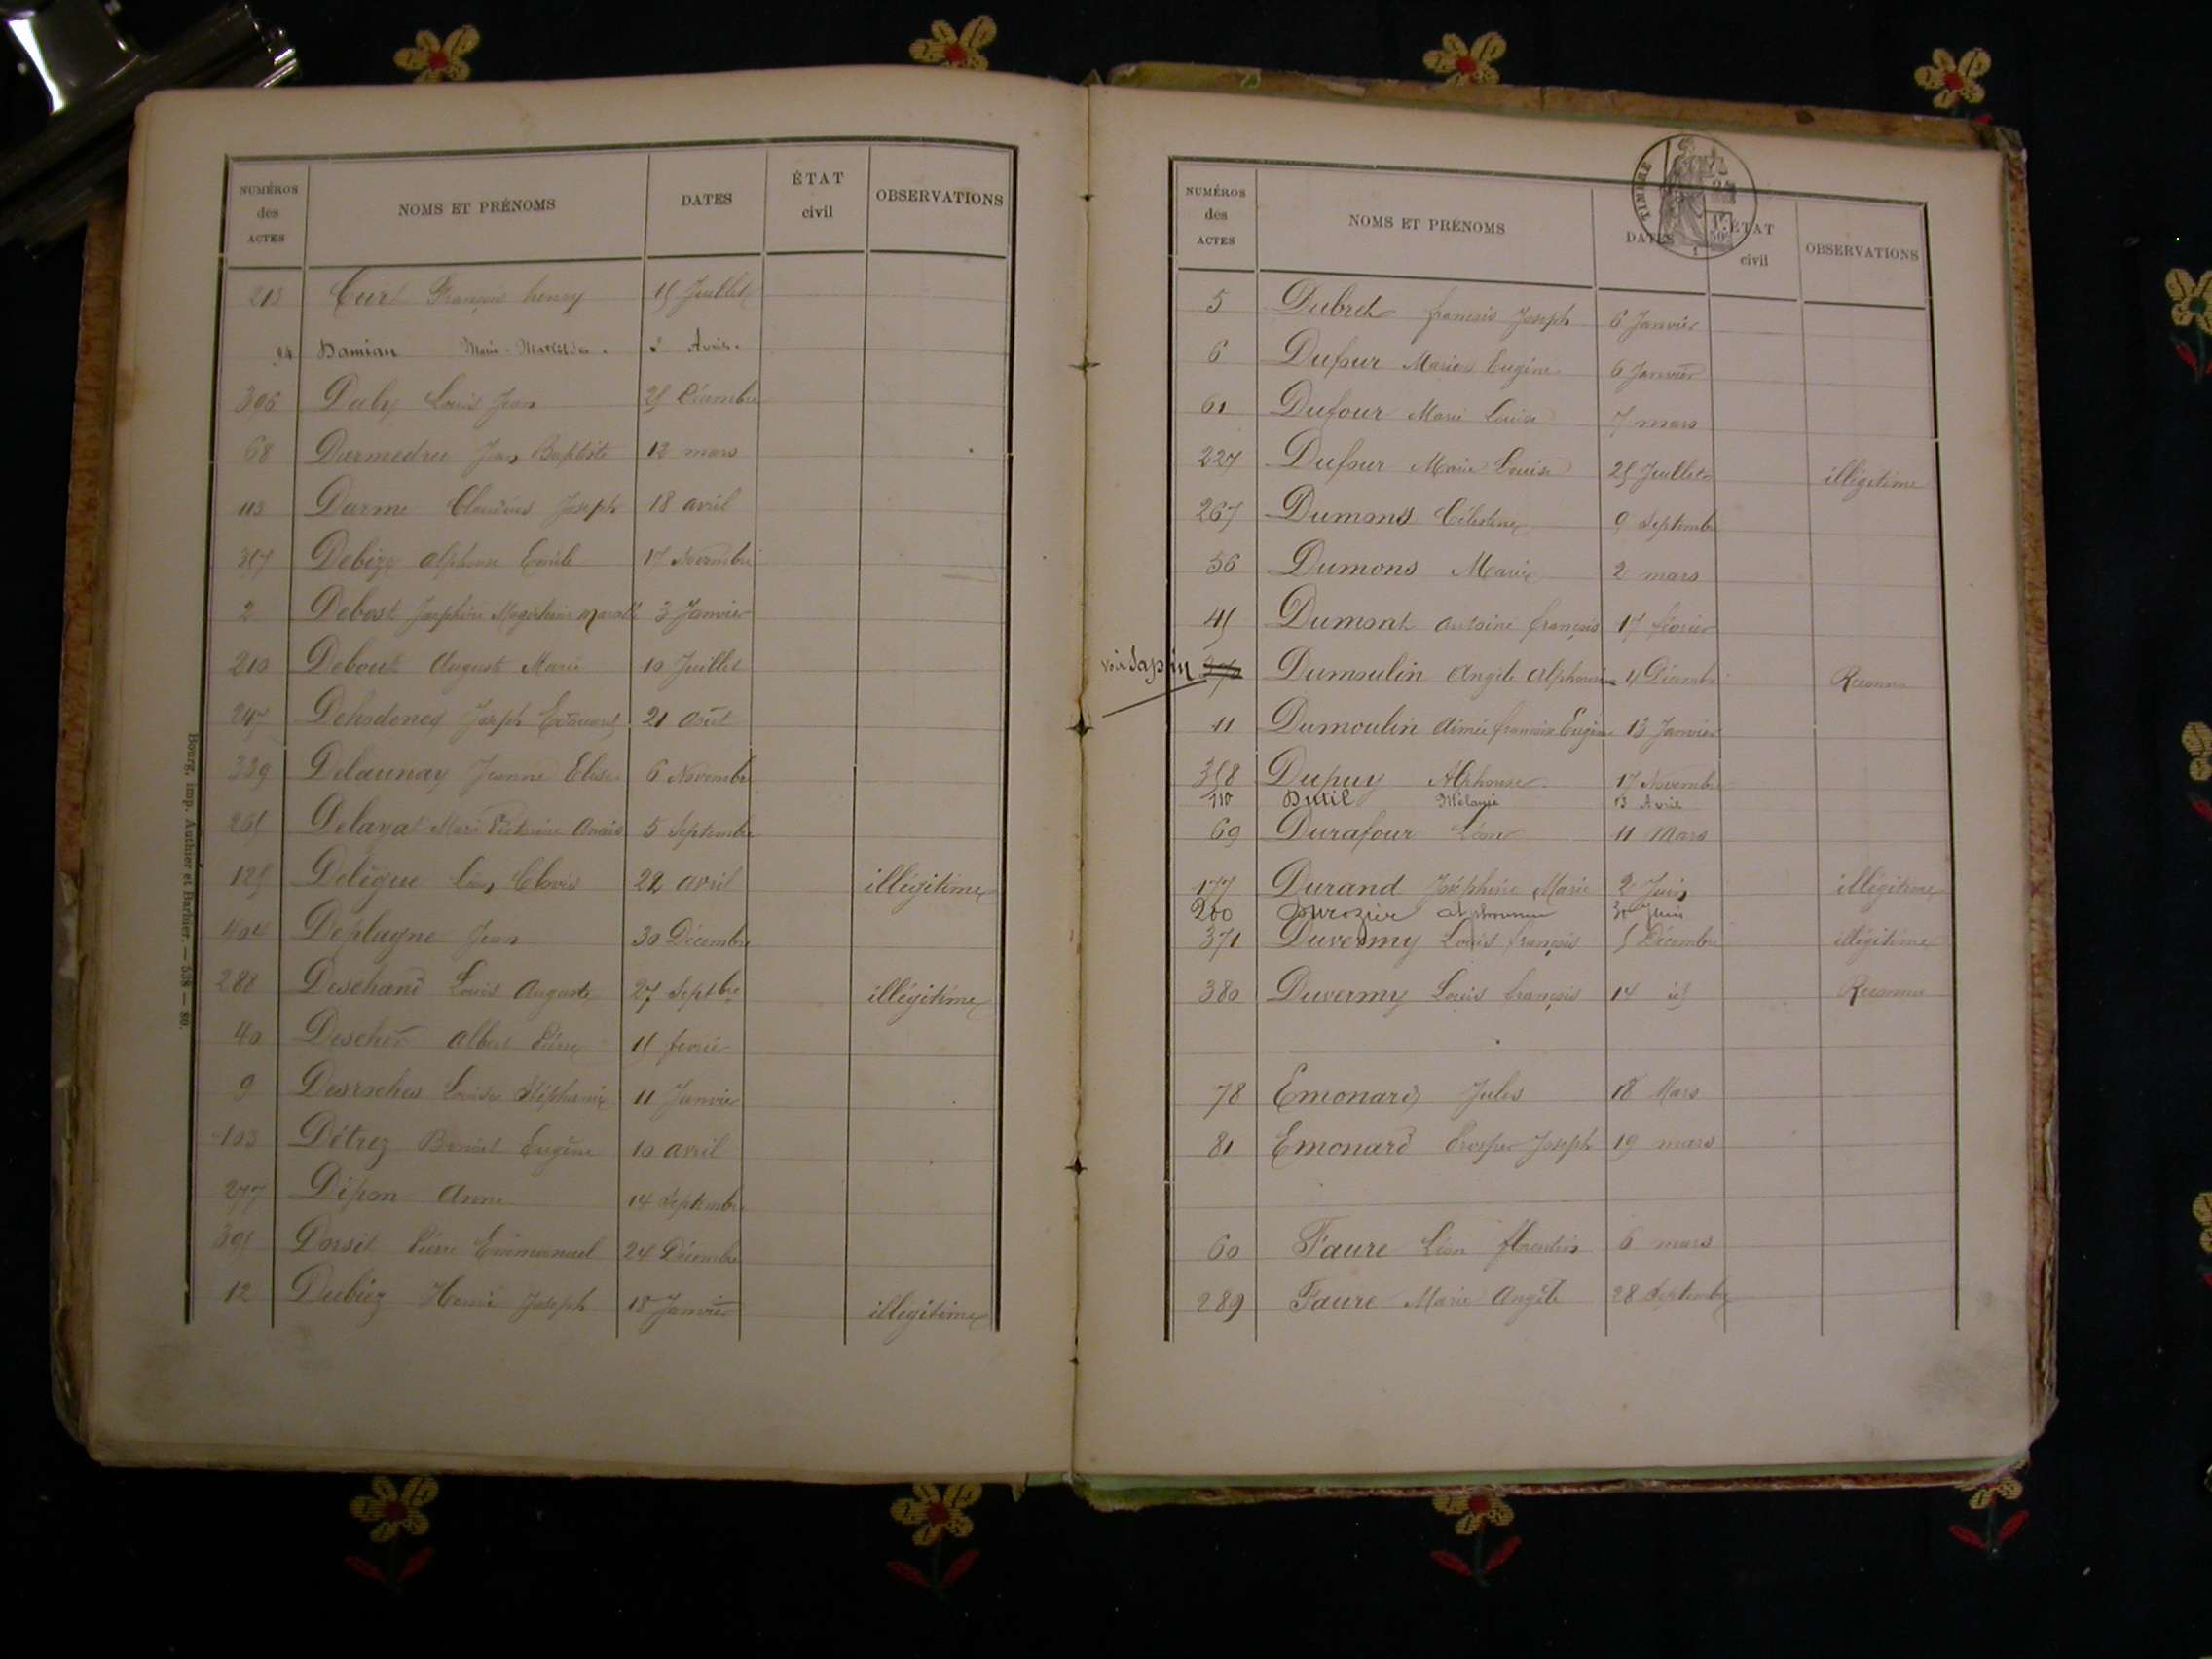 NUMÉROS des ACTES NOMS ET PRÉNOMS DATES ÉTAT civil OBSERVATIONS
213 Curt François henry 15 Juillet
94 Damian Marie 2 Avril
396 Daly Louis Jean 25 Décembre
68 Darmedru Jean Baptiste 12 mars
113 Darme Claudius Joseph 18 avril
357 Debize alphonse Emile 17 Novembre
2 Debost Joséphine 3 Janvier
210 Debout August Marie 10 Juillet
247 Joseph Edouard 21 août
339 Delaunay Jeanne Elise 6 Novembre
265 Delayat Marie Victorine Anaïs 5 Septembre
125 Delègue Léon Clovis 22 avril illégitime
404 Deplagne Jean 30 Décembre
288 Deschand Louis Auguste 27 Septbre illégitime
40 Albert Pierre 15 février
9 Desroches Louise Stéphanie 11 Janvier
103 Détrez Benoît Eugène 10 avril
277 Dépan Anne 14 Septembre
395 Dorsit Pierre Emmanuel 24 Décembre
12 Dubiez Henri Joseph 18 Janvier illégitime
Bourg, imp. Authier et Barbier. — 538 — 80.
TIMBRE
NUMÉROS des ACTES NOMS ET PRÉNOMS DATES ÉTAT civil OBSERVATIONS
5 Dubret françois Joseph 6 Janvier
6 Dufour Marie Eugène 6 Janvier
61 Dufour Marie Louise 7 mars
227 Dufour Marie Louise 25 Juillet illégitime
267 Dumons Célestine 9 Septembre
56 Dumons Marie 2 mars
45 Dumont antoine françois 17 février
voir Sapin Dumoulin Angèle Alphonsine 4 Décembre Reconnu
11 Dumoulin Aimée françoise Eugénie 13 Janvier
358 Dupuy Alphonse 17 Novembre
110 Dutil Mélanie 13 Avril
69 Durafour Léon 11 Mars
177 Durand Joséphine Marie 2 Juin illégitime
200 Durozier alphonsine 30 Juin
371 Duvermy Louis françois 5 Décembre illégitime
380 Duvermy Louis françois 14 id Reconnu
78 Emonard Jules 18 Mars
81 Emonard Prosper Joseph 19 mars
60 Faure Léon florentin 6 mars
289 Faure Marie Angèle 28 Septembre